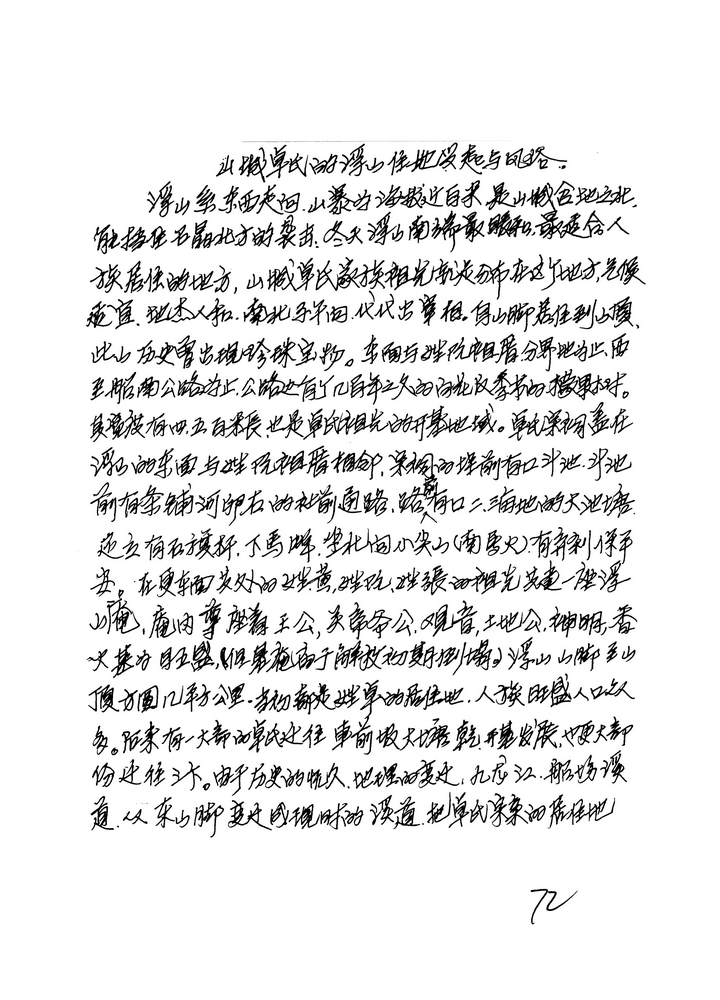 山城卓氏的浮山住地发起与风路。
浮山系东西走向,山暴为海拔近百米,是山城合地之北,
能挡住石晶北方的袭击,冬天浮山南端最暖和,最适合人
族居住的地方,山城卓氏家族祖先就決分布在这个地方,气候
适宜,地杰人和,南北子午向,代代出单相。自山脚居住到山顶,
此山历史曾出现珍珠宝物。东面与姓阮祖厝分界地为止,西
至船南公路为止,公路边有个几百年之久的向北反季节的芒果树。
其寬度有四、五百米長,也是卓氏祖先的开基地域。卓氏深祠盖在
浮山的东面与姓阮祖厝相邻,深祠的埕前有口斗池,斗池
前有条铺河卵石的社前通路,路前有口二、三亩地的大池塘,
还立有石旗杆,下馬牌,坐北向小尖山(南属火),有弃利保平
安。在更东面其外的姓黄,姓阮,姓張的祖先共建一座浮
山庵,庵内尊座着王公,关帝爷公,观音,土地公,神明,香
火甚为旺盛,(但暮庵高于解放初期倒塌。)浮山山脚至山
顶方圆几平方公里,当初都是姓卓的居住地,人族旺盛人口众
多。后来有一大部的卓氏迁往車前坡大塘乾开基发展,也更大部
份迁往汴。由于历史的悠久,地理的变迁,九龙江、船场溪
道,从东山脚变迁成现时的溪道,把卓氏宗亲的居住地
72